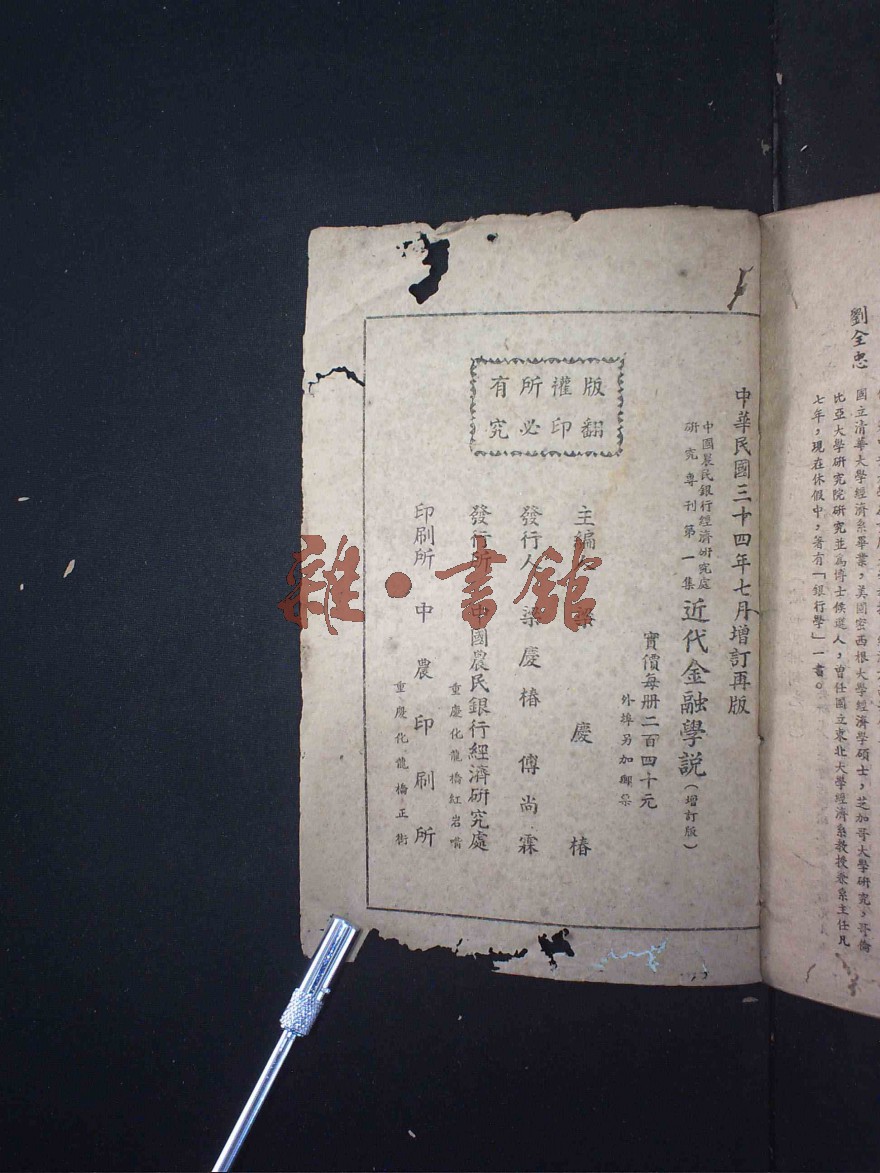 劉全忠
國立清華大學經濟系畢業,美國密西根大學經濟學碩士,芝加哥大學研究,哥倫
比亞大學研究院研究並為博士候選人,曾任國立東北大學經濟系教授兼系主任凡
七年,現在休假中,著有「銀行學」一書。
中華民國三十四年七月增訂再版
中國農民銀行經濟研究處
研究專刊第一集
近代金融學說(增訂版)
實價每册二百四十元
外埠另加郵
版權所有
翻印必究
主編 慶椿
發行人 梁慶椿 傅尚霖
發行所 中國農民銀行經濟研究處
重慶化龍橋紅岩嘴
印刷所 中農印刷所
重慶化龍橋正街
雜·書館